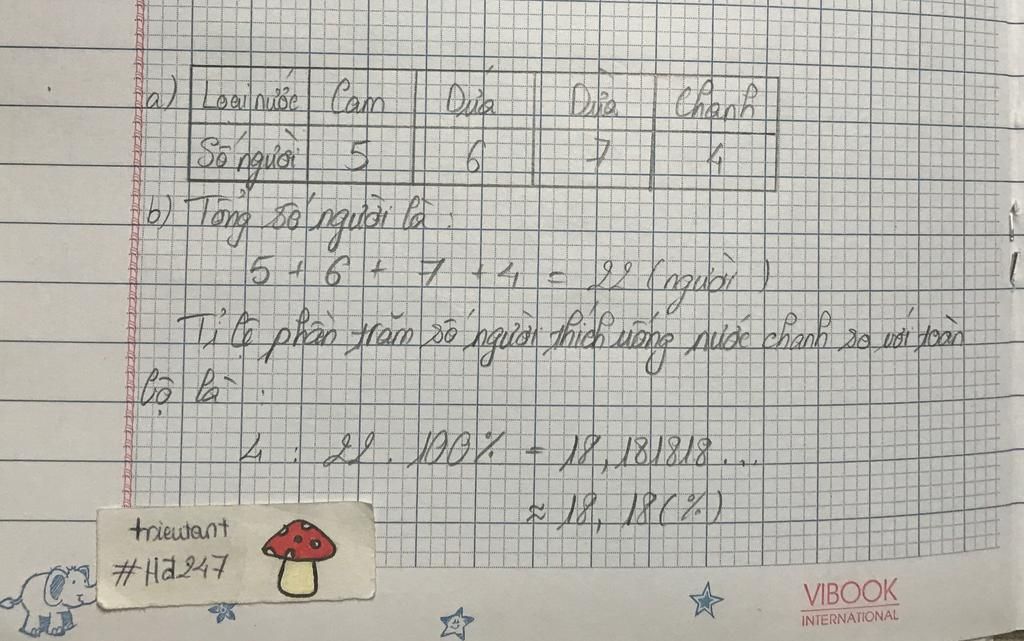 a) Loại nước Cam Dứa Dừa Chanh
Số người 5 6 7 4
b) Tổng số người là:
5 + 6 + 7 + 4 = 22 (người)
Tỉ lệ phần trăm số người thích uống nước chanh so với toàn
bộ là:
4 : 22 . 100% = 18,181818...
≈ 18, 18 (%)
trieutant
#Hđ247
VIBOOK
INTERNATIONAL